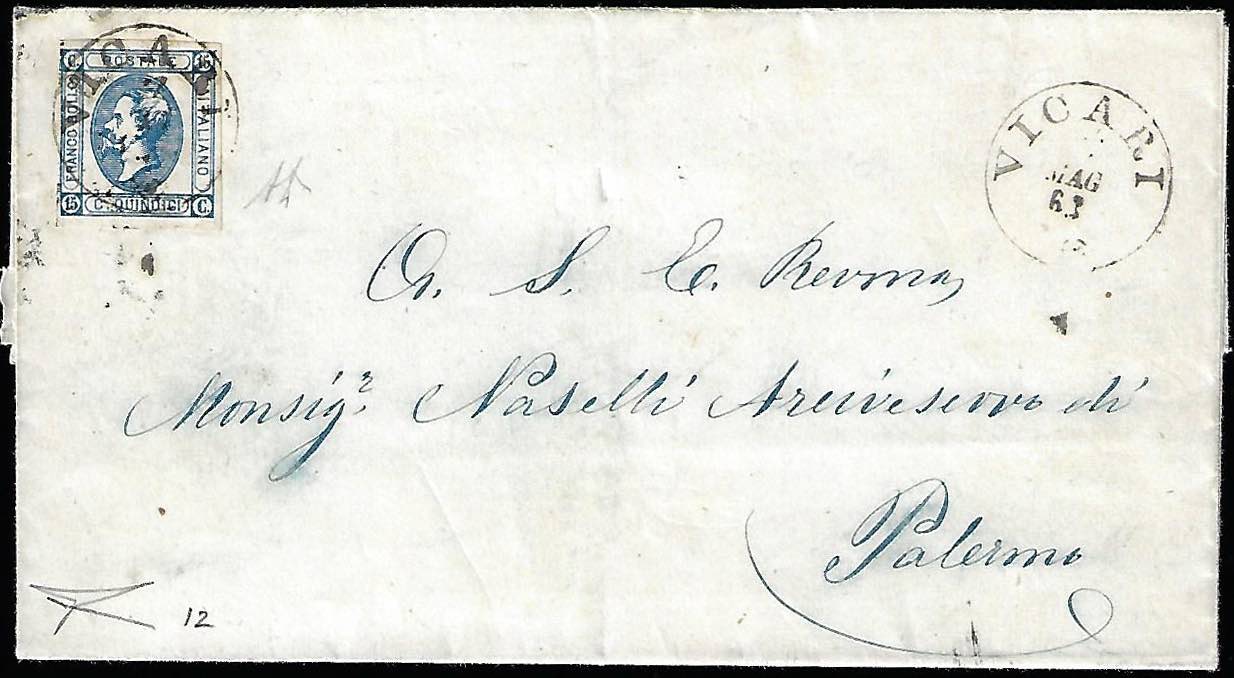 C. POSTALE 15
FRANCO BOLLO
ITALIANO
15 C. QUINDICI C.
VICARI
VICARI
MAG
63
A. S. E. Revma
Monsigr. Naselli Arcivescovo di
Palermo
12